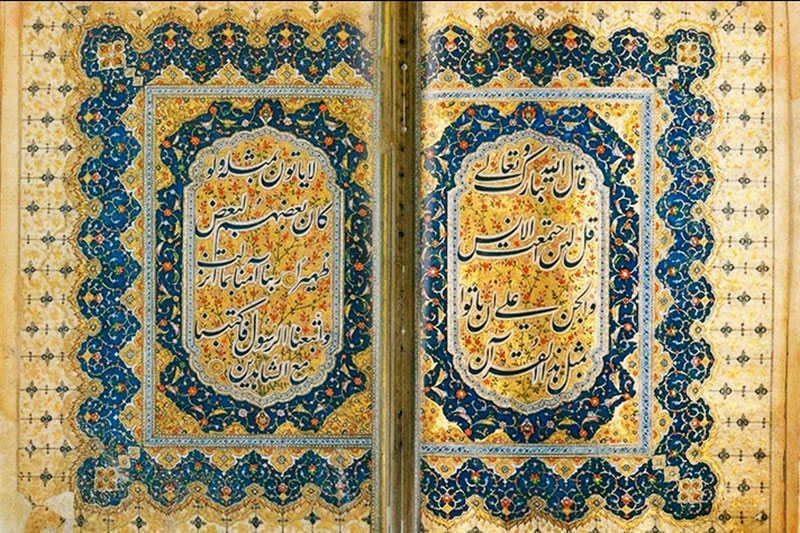 قال الله تبارک و تعالی
قل لئن اجتمعت الانس
والجن علی ان یاتوا
بمثل هذا القرآن
لا یاتون بمثله ولو
کان بعضهم لبعض
ظهیرا ربنا آمنا بما انزلت
واتبعنا الرسول فاکتبنا
مع الشاهدین